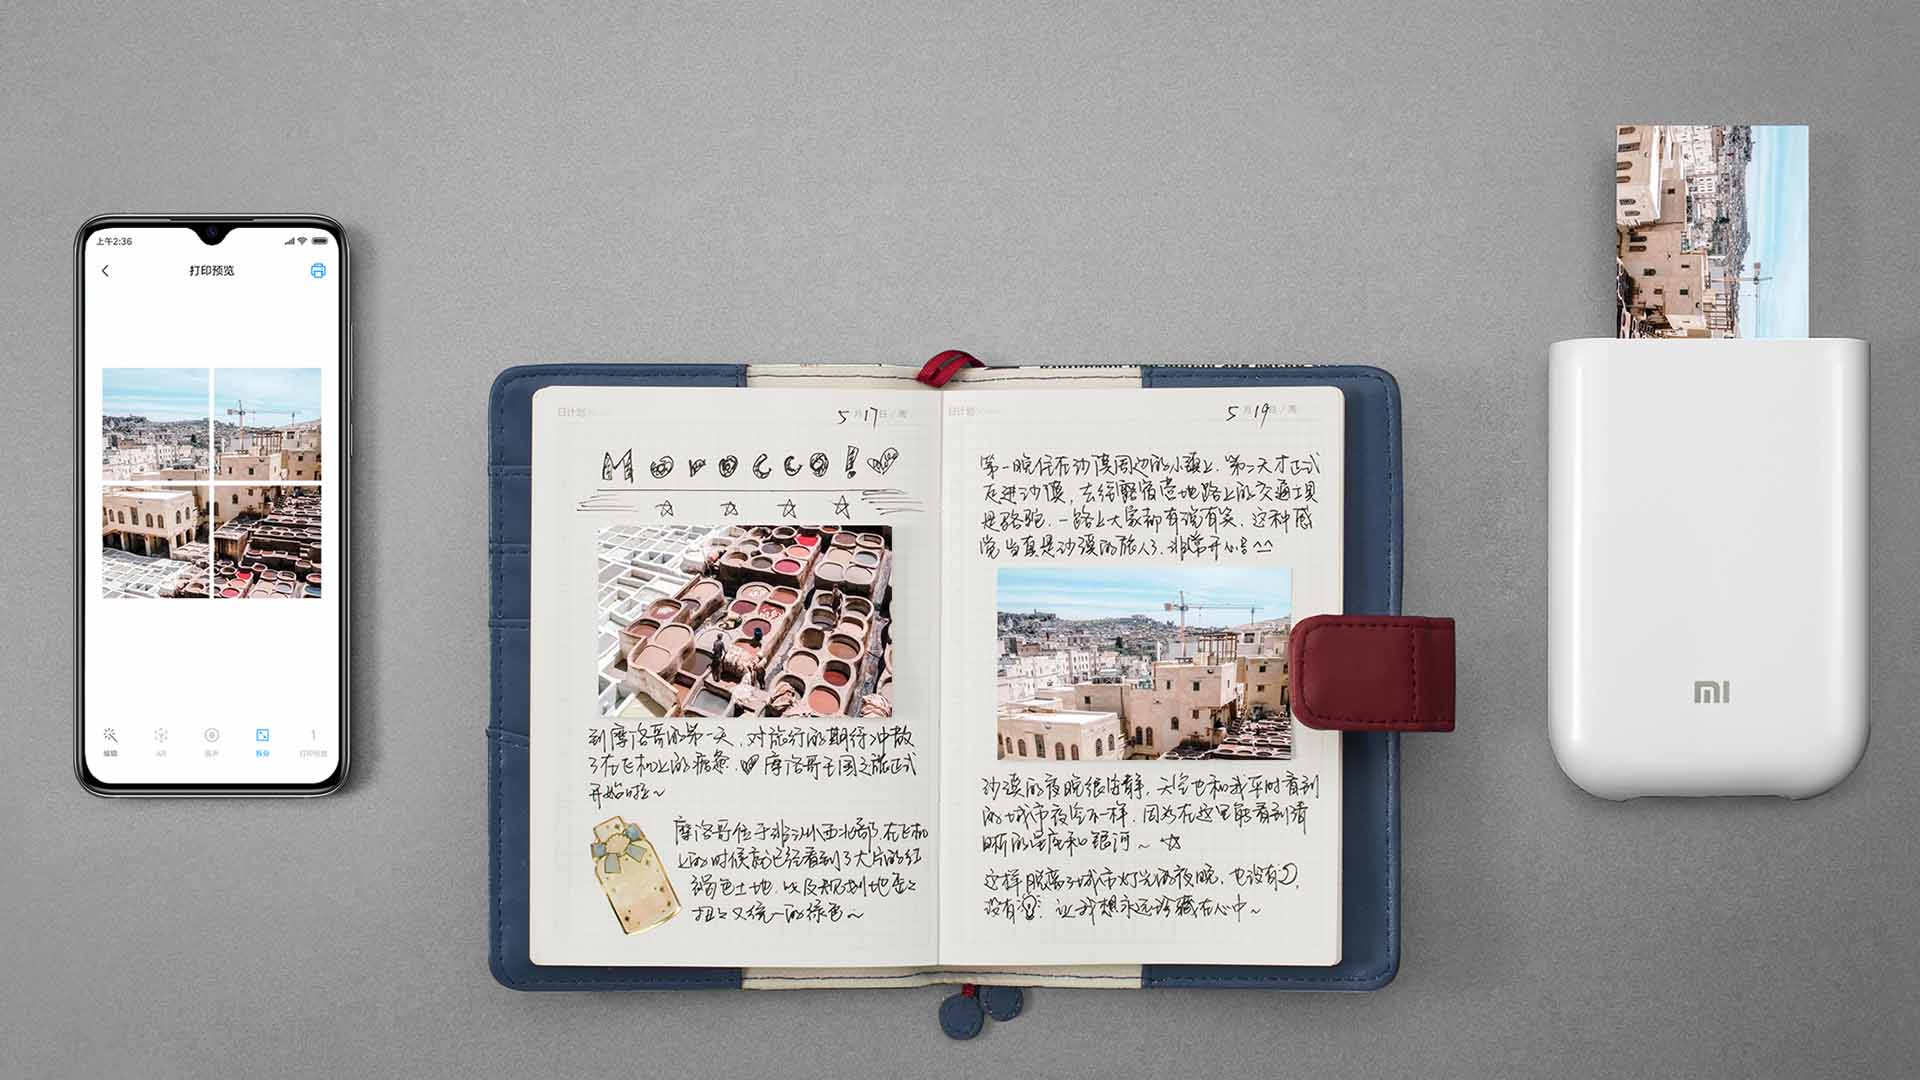 上午2:36
打印预览
编辑
AR
拆份
1
打印份数
日计划
5月17日/周
Morocco!
到摩洛哥的第一天,对旅行的期待冲散
了在飞机上的疲惫,摩洛哥王国之旅正式
开始啦~
摩洛哥位于非洲西北部,在飞机
上的时候就已经看到了大片的红
褐色土地,以及规划地歪歪
扭扭又统一的绿色~
日计划
5月19日/周
第一晚住在沙漠周边的小镇上,第二天才正式
走进沙漠,去往露宿营地路上的交通工具
是骆驼,一路上大家都有说有笑,这种感
觉当真是沙漠的旅人了,非常开心^^
沙漠的夜晚很安静,天空也和我平时看到
的城市夜空不一样,因为在这里能看到清
晰的星座和银河~
这样脱离了城市灯光的夜晚,也没有
没有,让我想永远珍藏在心中~
MI